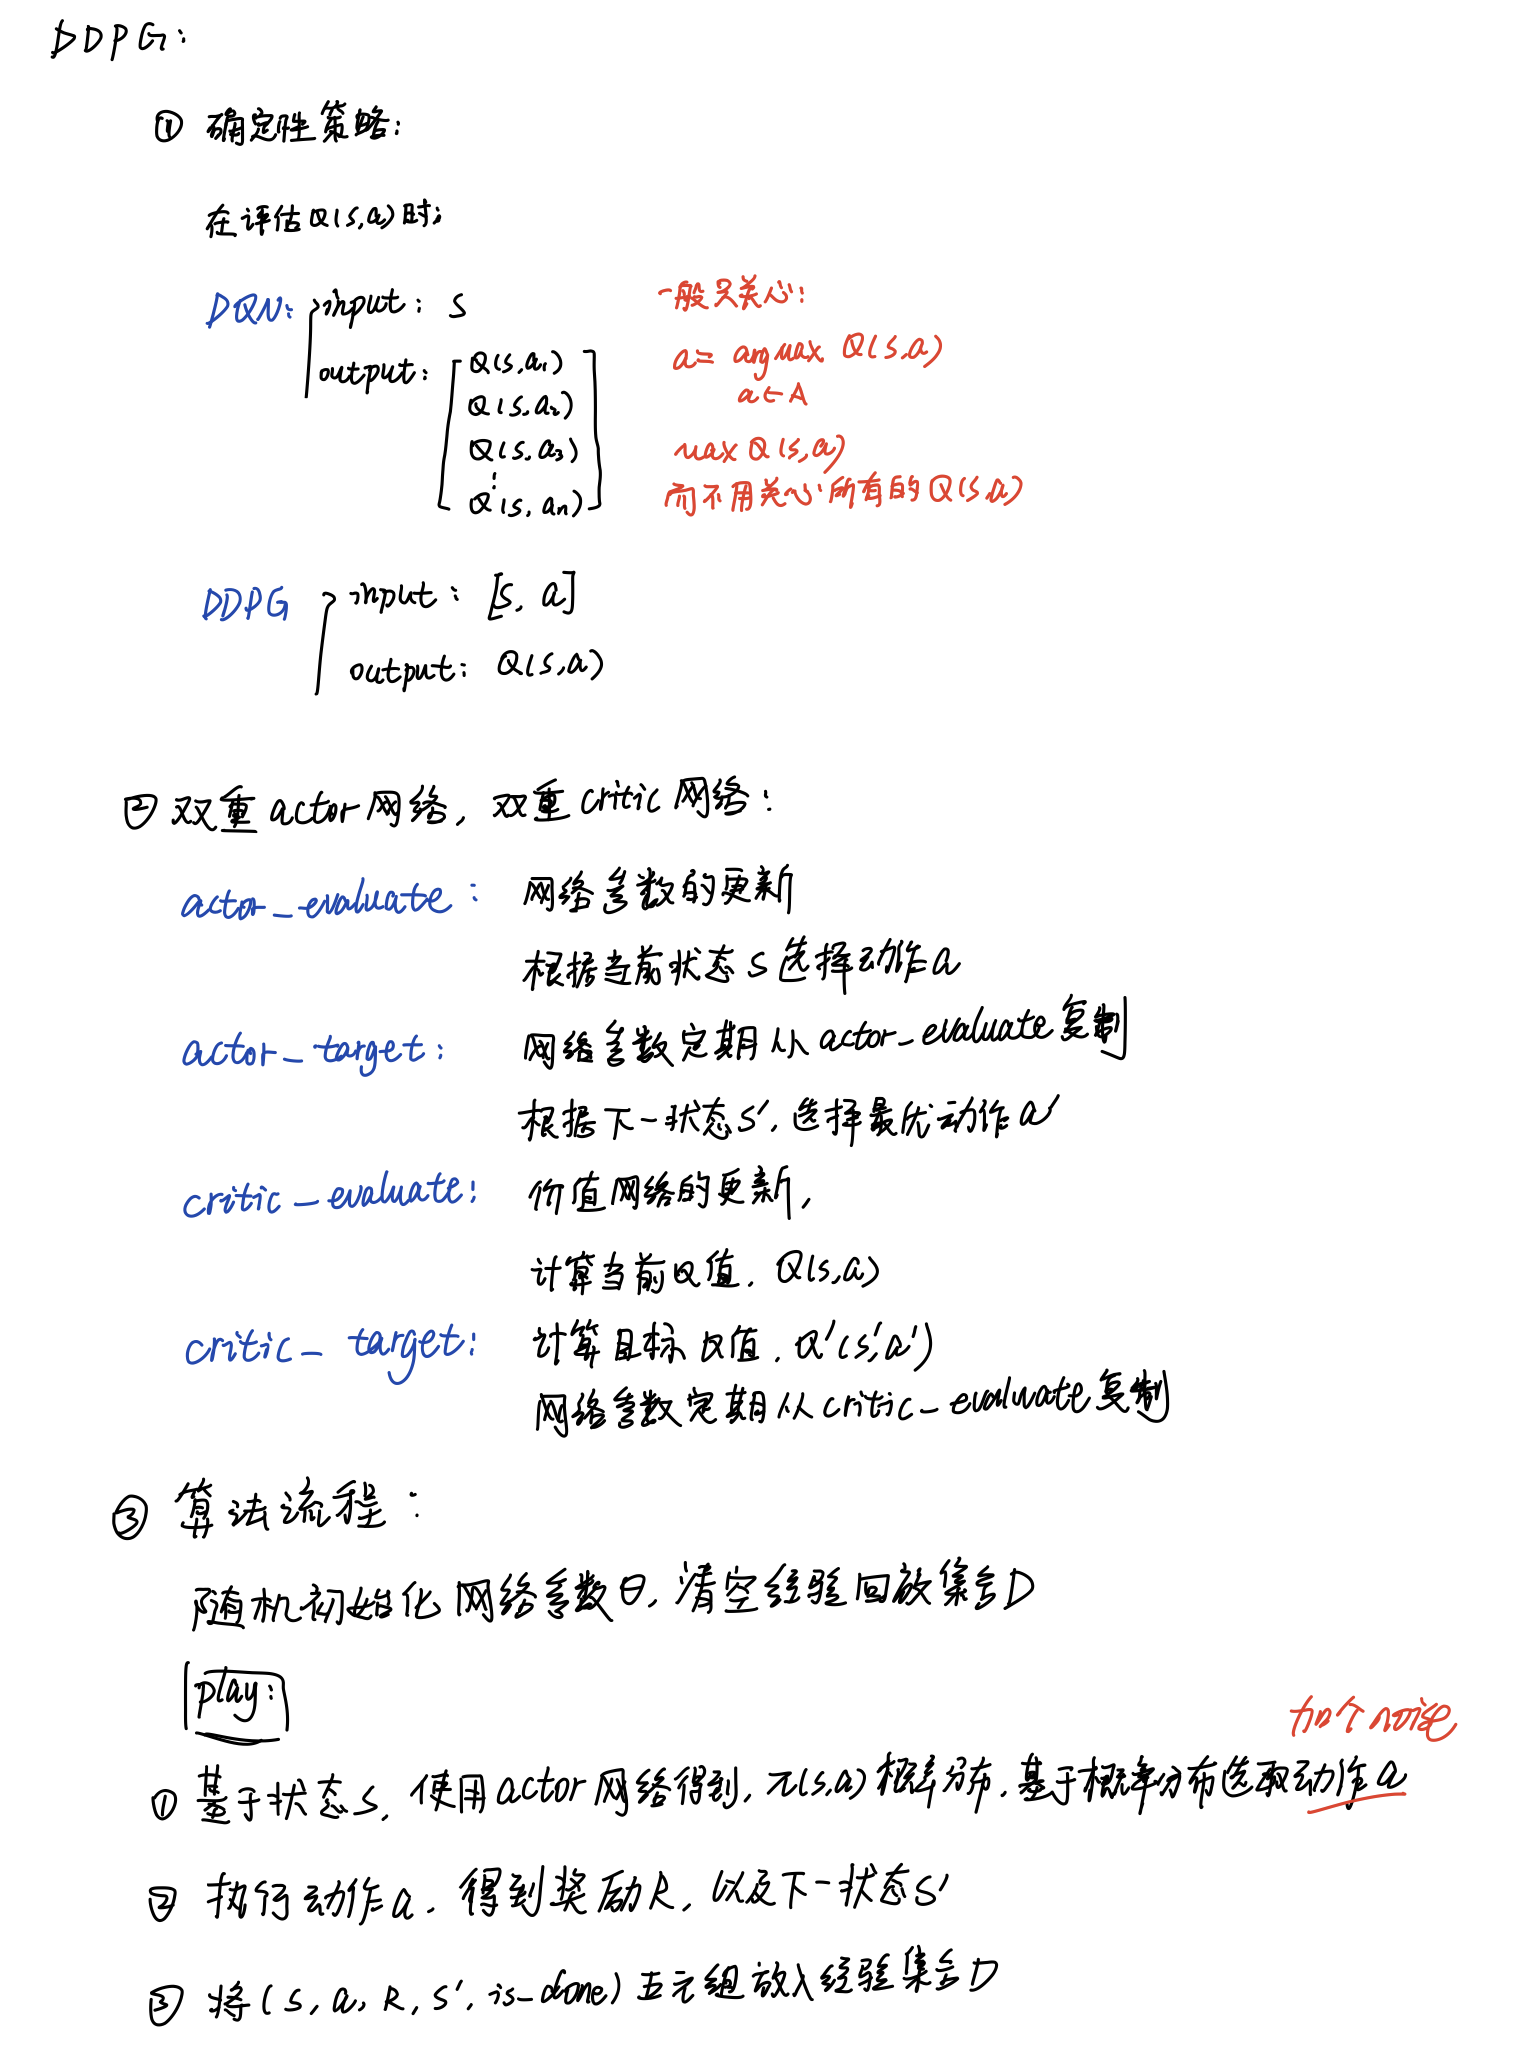 DDPG:
① 确定性策略:
在评估Q(s,a)时;
DQN: input: s
一般只关心:
output: Q(s,a₁)
a = argmax Q(s,a)
a∈A
Q(s,a₂)
Q(s,a₃)
max Q(s,a)
⋮
而不用关心所有的Q(s,a)
Q(s,aₙ)
DDPG input: [s, a]
output: Q(s,a)
② 双重actor网络, 双重critic网络:
actor_evaluate: 网络参数的更新
根据当前状态s选择动作a
actor_target: 网络参数定期从actor_evaluate复制
根据下一状态s', 选择最优动作a'
critic_evaluate: 价值网络的更新,
计算当前Q值. Q(s,a)
critic_target: 计算目标Q值. Q'(s',a')
网络参数定期从critic_evaluate复制
③ 算法流程:
随机初始化网络参数θ, 清空经验回放集合D
play:
加个noise
① 基于状态s, 使用actor网络得到, π(s,a)概率分布, 基于概率分布选取动作a
② 执行动作a. 得到奖励R, 以及下一状态s'
③ 将(s, a, R, s', is_done)五元组放入经验集合D